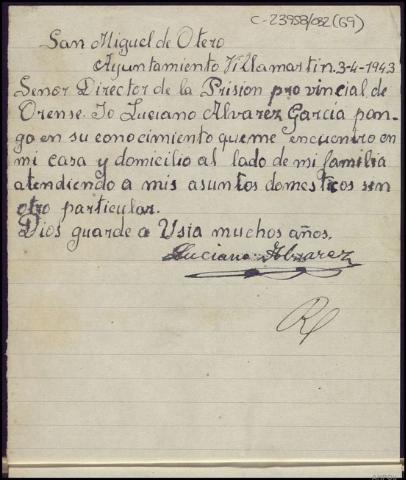 C-23958/082(69)
San Miguel de Otero
Ayuntamiento Villamartin.3-4-1943
Señor Director de la Prision provincial de
Orense. Io Luciano Alvarez García pon-
go en su conocimiento queme encuentro en
mi casa y domicilio al lado de mi familia
atendiendo a mis asuntos domesticos sen
otro particular.
Dios guarde a Usia muchos años.
Luciano Alvarez